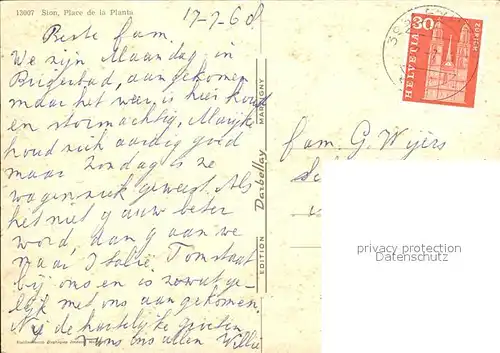 13007 Sion, Place de la Planta
17-7-68
Beste fam.
We zijn Maandag in
Brigerbad, aangekomen
maar het weer is hier koud
en stormachtig, Marijke
houd zich aardig goed
maar Zondag is ze
wagenziek geweest. Als
het niet gauw beter
word, dan gaan we
maar Italië. Tom staat
bij ons en is
lijk met ons aangekomen.
de hartelijke groeten
van ons allen Willie
EDITION Darbellay MARTIGNY
HELVETIA
30
ZUERICH
fam. G. Wijers
privacy protection
DARABANTH CO. LTD.